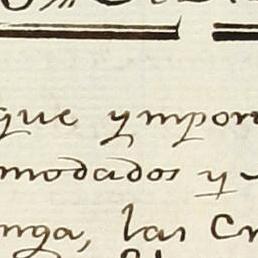 que ympor
modados y
nga, las Cr